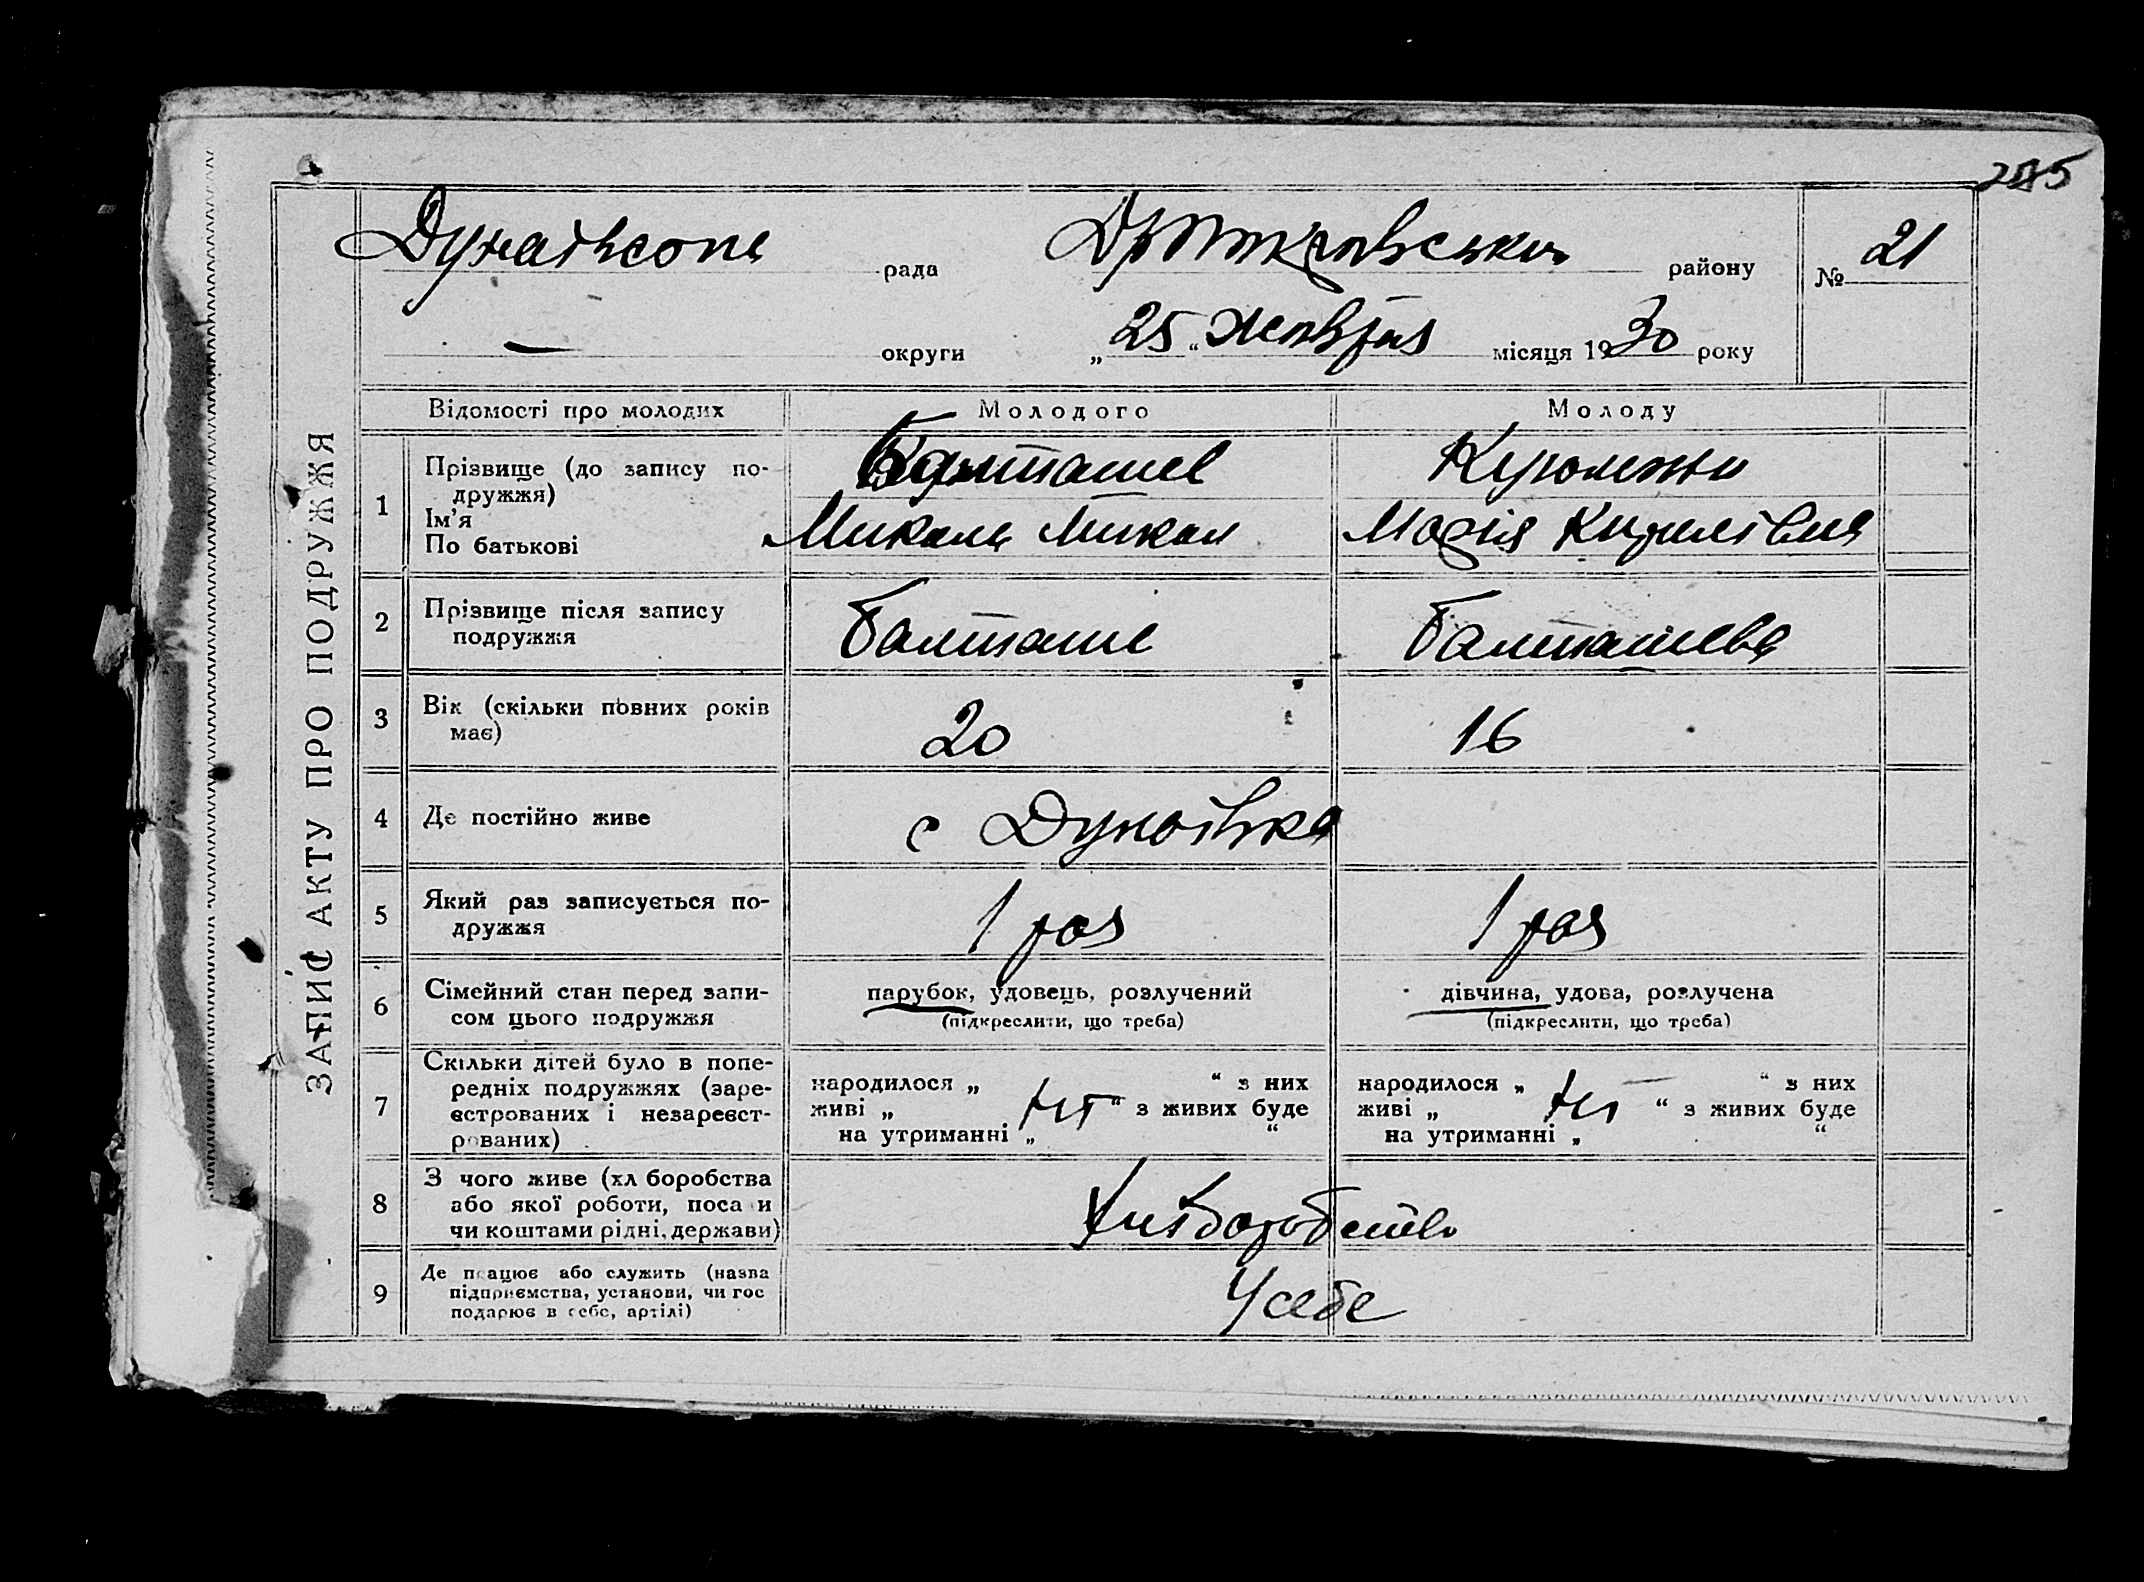 205
ЗАПИС АКТУ ПРО ПОДРУЖЖЯ
рада
району
№ 21
округи
„25“ Жовтня місяця 1930 року
Відомості про молодих
Молодого
Молоду
1
Прізвище (до запису по-
дружжя)
Ім'я
По батькові
Микола Микол
Марія Кирилівна
2
Прізвище після запису
подружжя
Балташе
Балташева
3
Вік (скільки повних років
має)
20
16
4
Де постійно живе
с Дунаївка
5
Який раз записується по-
дружжя
1 раз
1 раз
6
Сімейний стан перед запи-
сом цього подружжя
парубок, удовець, розлучений
(підкреслити, що треба)
дівчина, удова, розлучена
(підкреслити, що треба)
7
Скільки дітей було в попе-
редніх подружжях (заре-
єстрованих і незареєст-
рованих)
народилося „ “ з них
живі „ нет “ з живих буде
на утриманні „ “
народилося „ “ з них
живі „ нет “ з живих буде
на утриманні „ “
8
З чого живе (хл боробства
або якої роботи, поса и
чи коштами рідні, держави)
Хліборобство
9
Де працює або служить (назва
підприємства, установи, чи гос
подарює в себе, артілі)
У себе